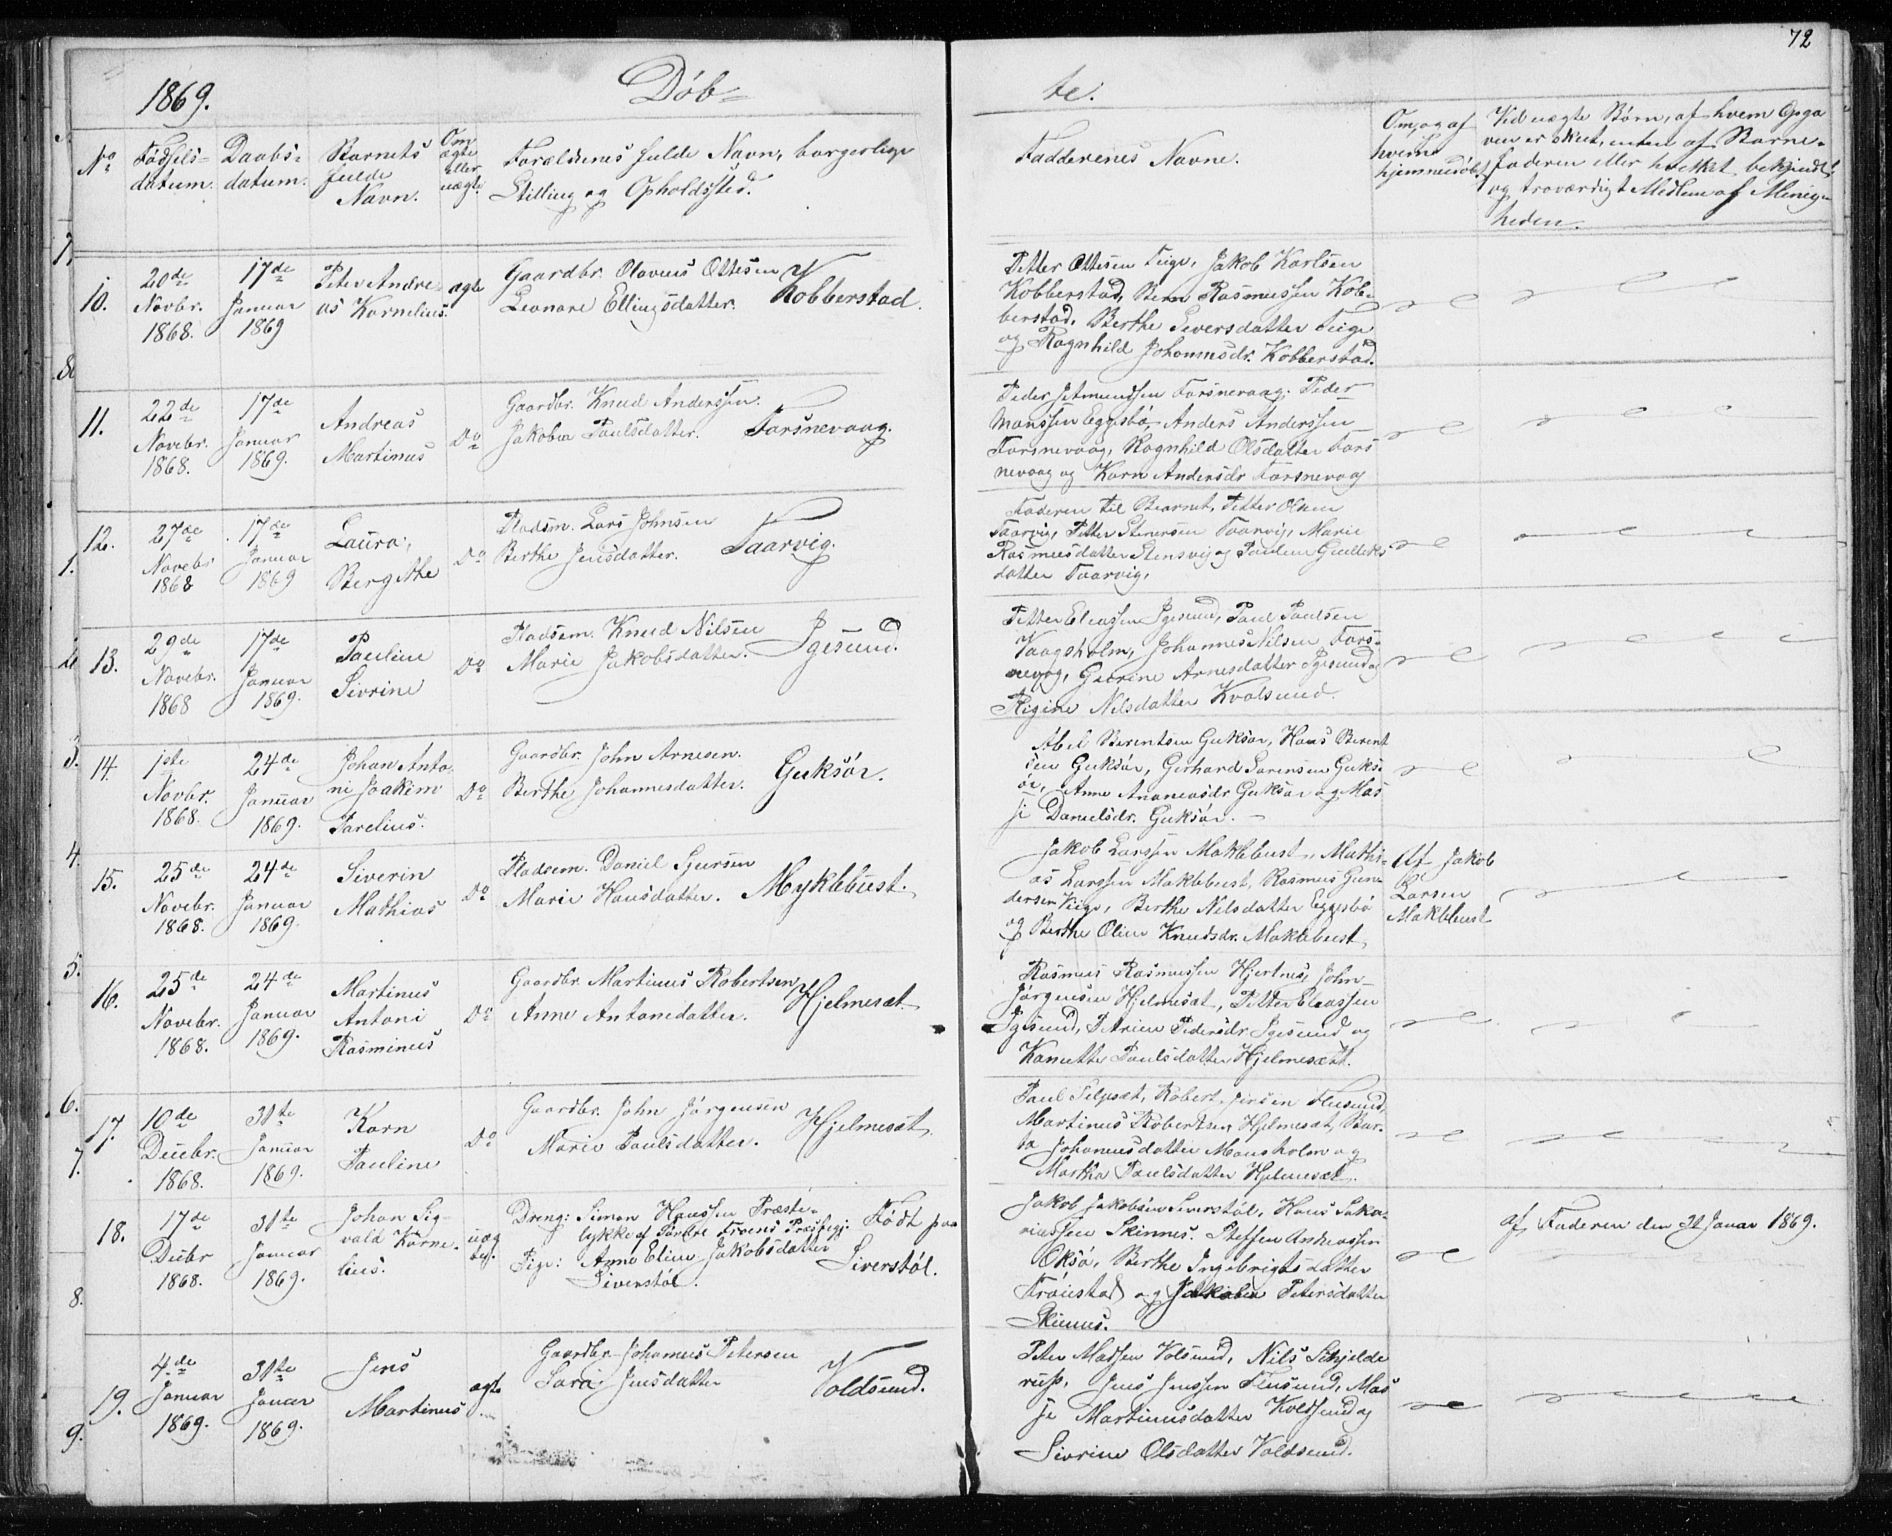 72
1869.
Döb=
te.
No
Fødsels=
datum.
Daabs=
datum.
Barnets
fulde
Navn.
Om
ægte
eller
uægte
Forældrenes fulde Navn, borgerlige
Stilling og Opholdssted.
Faddernes Navne.
Om og af
hvem
hjemmedøbt
Ved uægte Børn, af hvem Opga
ven er skeet, enten af Barne-
faderen eller hvilket bekjendt
og troværdigt Medlem af Menig-
heden.
10.
20de
Novbr.
1868.
17de
Januar
1869
Peter Andre-
as Kornelius.
ægte
Gaardbr. Olavus Ottesen
Leonare Ellingsdatter.
Kobberstad.
Petter Ottesen Teige, Jakob Karlsen
Kobberstad, Bern Rasmussen Kob-
berstad. Berthe Siversdatter Teige
og Ragnhild Johannesdr. Kobberstad.
11.
22de
Novebr.
1868.
17de
Januar
1869.
Andreas
Martinus
Do
Gaardbr. Knud Anderssen.
Jakobea Paulsdatter.
Forsnevaag.
Peder Forsnevaag. Peder
Monssen Eggesbö, Anders Anderssen
Forsnevaag, Ragnhild Olsdatter Fors
nevaag og Karn Andersdr Forsnevaag
12.
27de
Novebr
1868
17de
Januar
1869
Laura,
Bergithe
Do
Pladsm. Lars Johnsen
Berthe Jensdatter.
Taarvig.
Faderen til Barnet, Petter Olsen
Taarvig, Petter Stenersen Taarvig, Marie
Rasmusdatter Stensvig og Gulleks
datter Taarvig,
13.
29de
Novebr.
1868
17de
Januar
1869.
Pauline
Sivrine
Do
Pladsem. Knud Nilsen
Marie Jakobsdatter.
Igesund.
Petter Eliassen Igesund, Paul Paulsen
Vaagsholm, Johannes Nilsen Fors-
nevag, Arnesdatter Igesund og
Rigine Nilsdatter Kvalsund.
14.
1ste
Novbr.
1868.
24de
Januar
1869.
Johan Anto-
ni Joakim
Parelius.
Do
Gaardbr. John Arnesen.
Berthe Johannesdatter.
Gjuksör.
Abel Berentsen Gjuksør, Hans Berent
sen Gjuksör, Gerhard Sorensen Gjuks-
ör, Anne Ananiasdr Gjuksør og Mas
si Danielsdr. Gjuksör. -
15.
25de
Novebr.
1868.
24de
Januar
1869.
Siverin
Mathias
Do
Pladsem. Daniel Sjursen
Marie Hansdatter.
Myklebust.
Jakob Larssen Maklebust, Mathi-
as Larssen Maklebust, Rasmus Gun-
dersen Teige, Berthe Nilsdatter Eggesbö
og Berthe Oline Knudsdr. Maklebust.
Af Jakob
Larsen
Maklebust
16.
25de
Novebr.
1868.
24de
Januar
1869.
Martinus
Antoni
Rasminus
Do
Gaardbr. Martinus Robertsen
Anne Antonsdatter.
Hjelmesæt
Rasmus Rasmussen Hjertnes, John
Jørgensen Hjelmesæt, Petter Eliassen
Igesund, Petrine Pedersdr Igesund og
Kanutte Paulsdatter Hjelmesæt.
17.
10de
Decbr.
1868.
31te
Januar
1869.
Karn
Pauline
Do
Gaardbr. John Jørgensen
Marie Paulsdatter.
Hjelmesæt.
Paul Selpsæt, Robert Jensen Flusund,
Martinus Robertsen Hjelmesæt, Ber-
ta Johannesdatter Mansholm og
Martha Paulsdatter Hjelmesæt.
18.
17de
Decbr
1868.
31te
Januar
1869.
Johan Sig-
vald Korne-
lius.
uæg
te.
Dreng: Simon Hanssen Præste-
lykke af Söndre Froens Præstegj:
Pige: Anne Eline Jakobsdatter
Siverstöl.
Födt paa
Siverstöl.
Jakob Jakobsen Siverstöl, Hans Saka-
riassen Skinnes. Steffen Andreassen
Oksö, Berthe Ingebrigtsdatter
Fröistad og Jakobea Petersdatter
Skinnes.
af Faderen den 21 Januar 1869.
19.
4de
Januar
1869.
31te
Januar
1869.
Jens
Martinus
ægte
Gaardbr. Johannes Petersen
Sara Jensdatter
Voldsund.
Peter Madsen Volsund, Nils Schjelde
rup, Jens Jenssen Flusund, Mas
si Martinusdatter Voldsund og
Sivrine Olsdatter Voldsund.